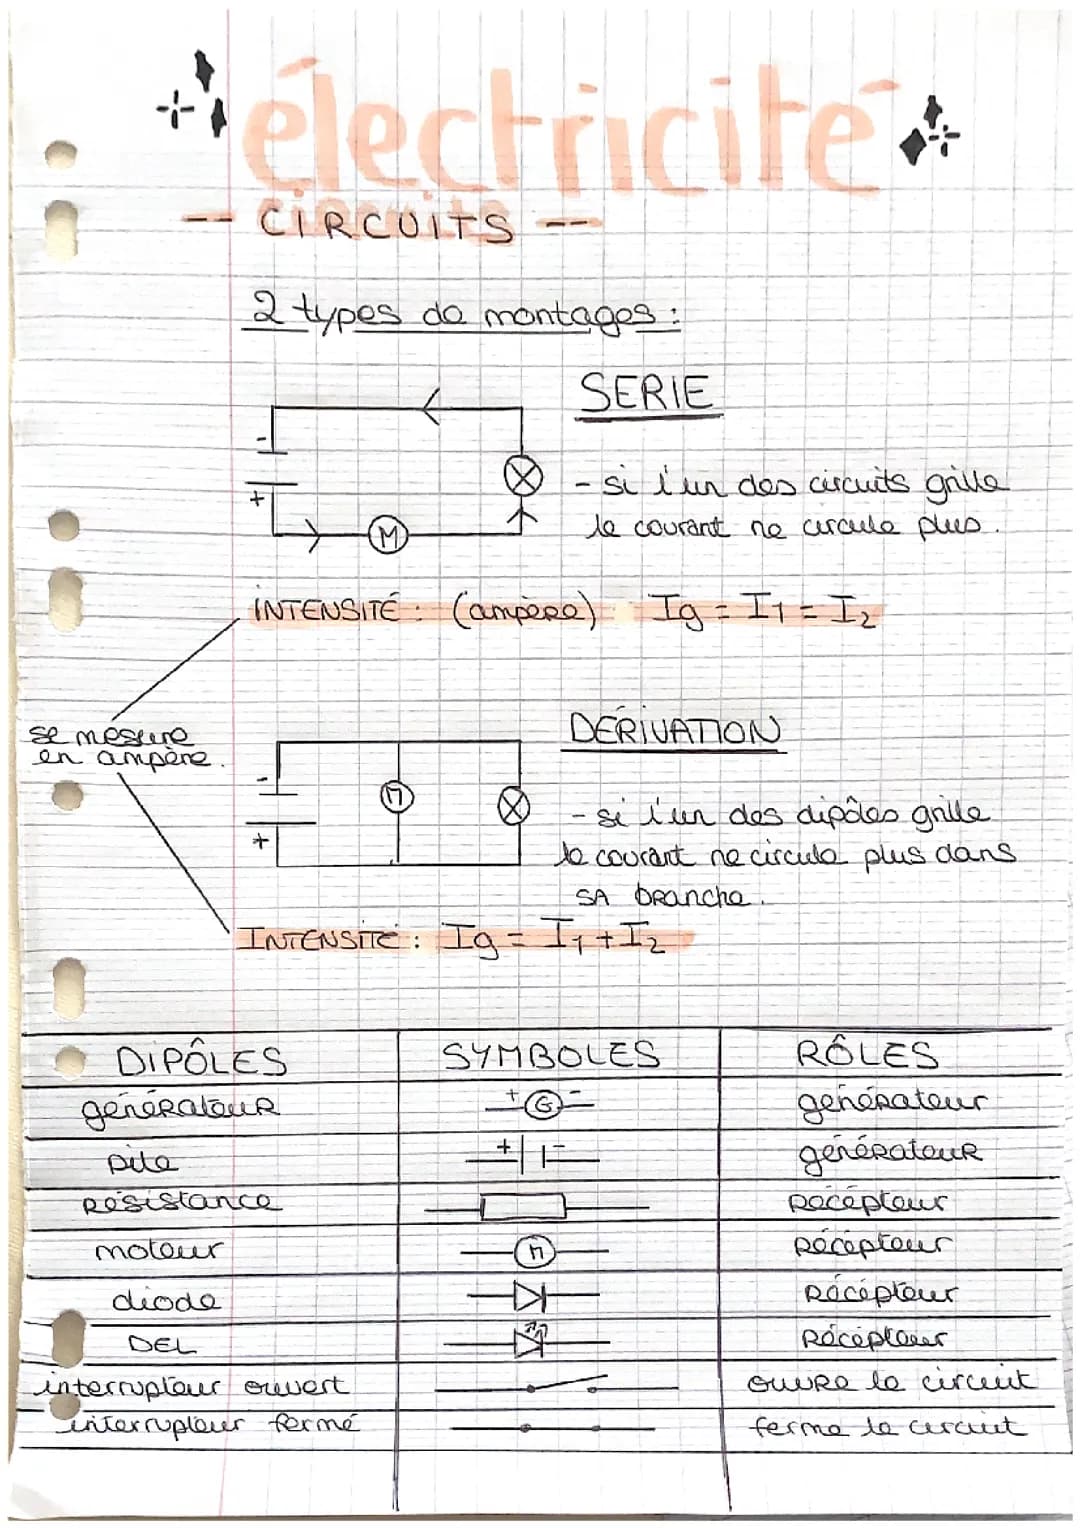 électricité
-- CIRCUITS --
2 types de montages :
SERIE
-
+
M
- si l'un des circuits grille
le courant ne circule plus.
INTENSITÉ : (ampère) : Ig = I1 = I2
se mesure
en ampère.
DÉRIVATION
-
+
M
- si l'un des dipôles grille
le courant ne circule plus dans
SA branche.
INTENSITÉ : Ig = I1 + I2
DIPÔLES SYMBOLES RÔLES
générateur + G - générateur
pile + - générateur
résistance récépteur
moteur M récépteur
diode récépteur
DEL récépteur
interrupteur ouvert ouvre le circuit
interrupteur fermé ferme le circuit